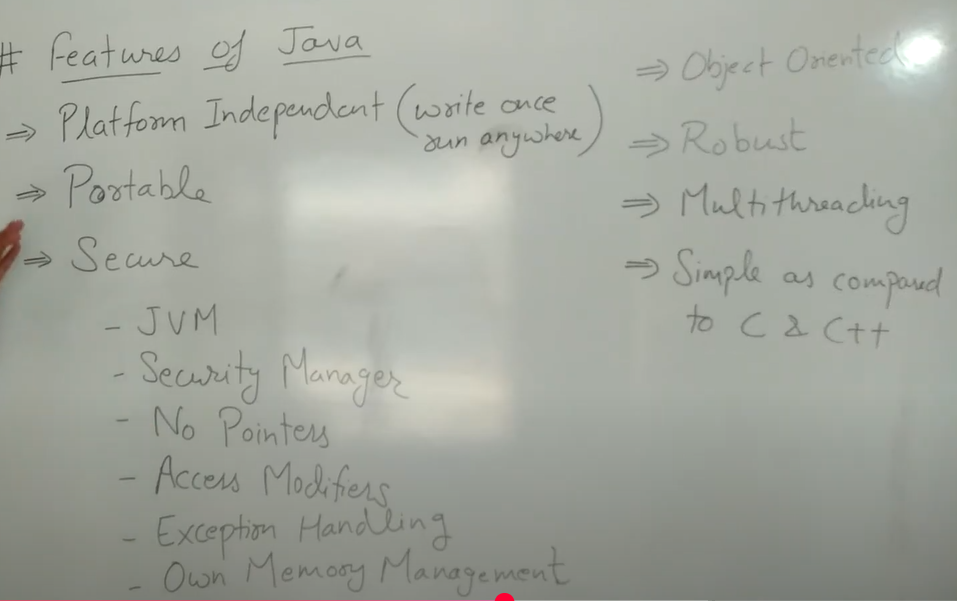 # Features of Java
⇒ Platform Independent (write once
run anywhere)
⇒ Portable
⇒ Secure
- JVM
- Security Manager
- No Pointers
- Access Modifiers
- Exception Handling
- Own Memory Management
⇒ Object Oriented
⇒ Robust
⇒ Multithreading
⇒ Simple as compared
to C & C++